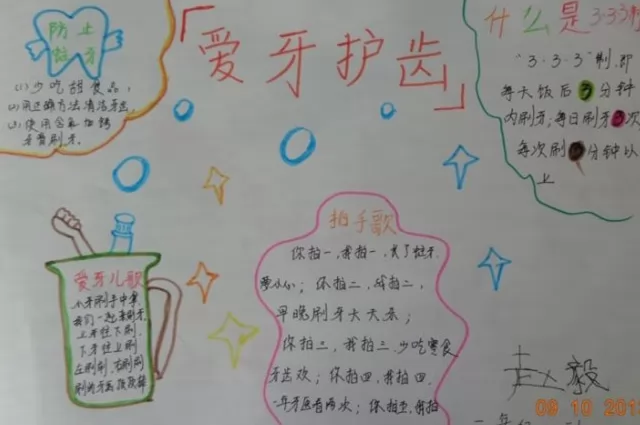 防止
蛀牙
(1)少吃甜食品,
(2)用正确方法清洁牙齿,
(3)使用含氟
牙膏刷牙.
「爱牙护齿」
什么是3·3·3制
"3·3·3"制.即
每天饭后3分钟
内刷牙;每日刷牙3次
每次刷3分钟以
上
爱牙儿歌
小牙刷手中拿,
我们一起来刷牙,
上牙往下刷,
下牙往上刷
左刷刷,右刷刷
刷的牙齿
拍手歌
你拍一,我拍一,
小小;你拍二,我拍二,
早晚刷牙天天乐;
你拍三,我拍三,少吃零食
牙齿欢;你拍四,我拍四.
一年牙医看两次;你拍五,我拍
赵毅
09 10 201